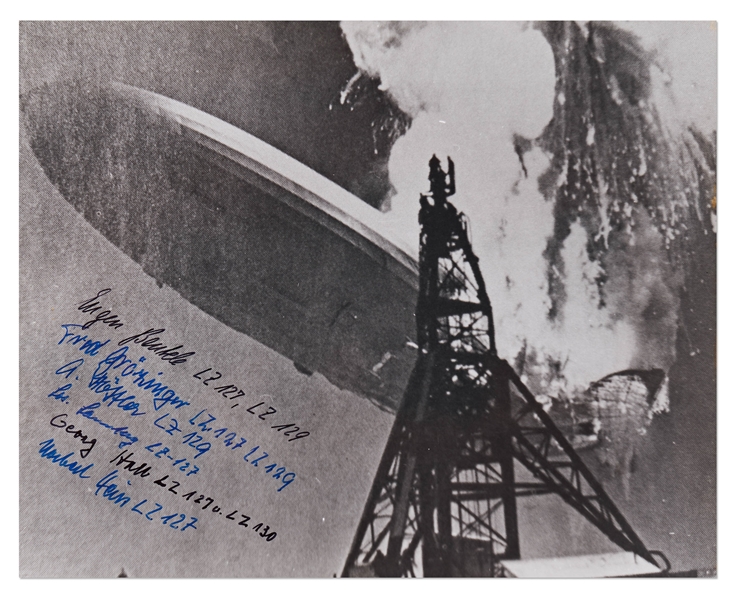 Eugen Bentele LZ 127, LZ 129
Fred Grözinger LZ 127 LZ 129
A. Stöffler LZ 129
LZ-127
Georg Halle LZ 127 u. LZ 130
Norbert Hein LZ 127